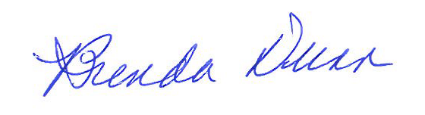 Brenda Dunn